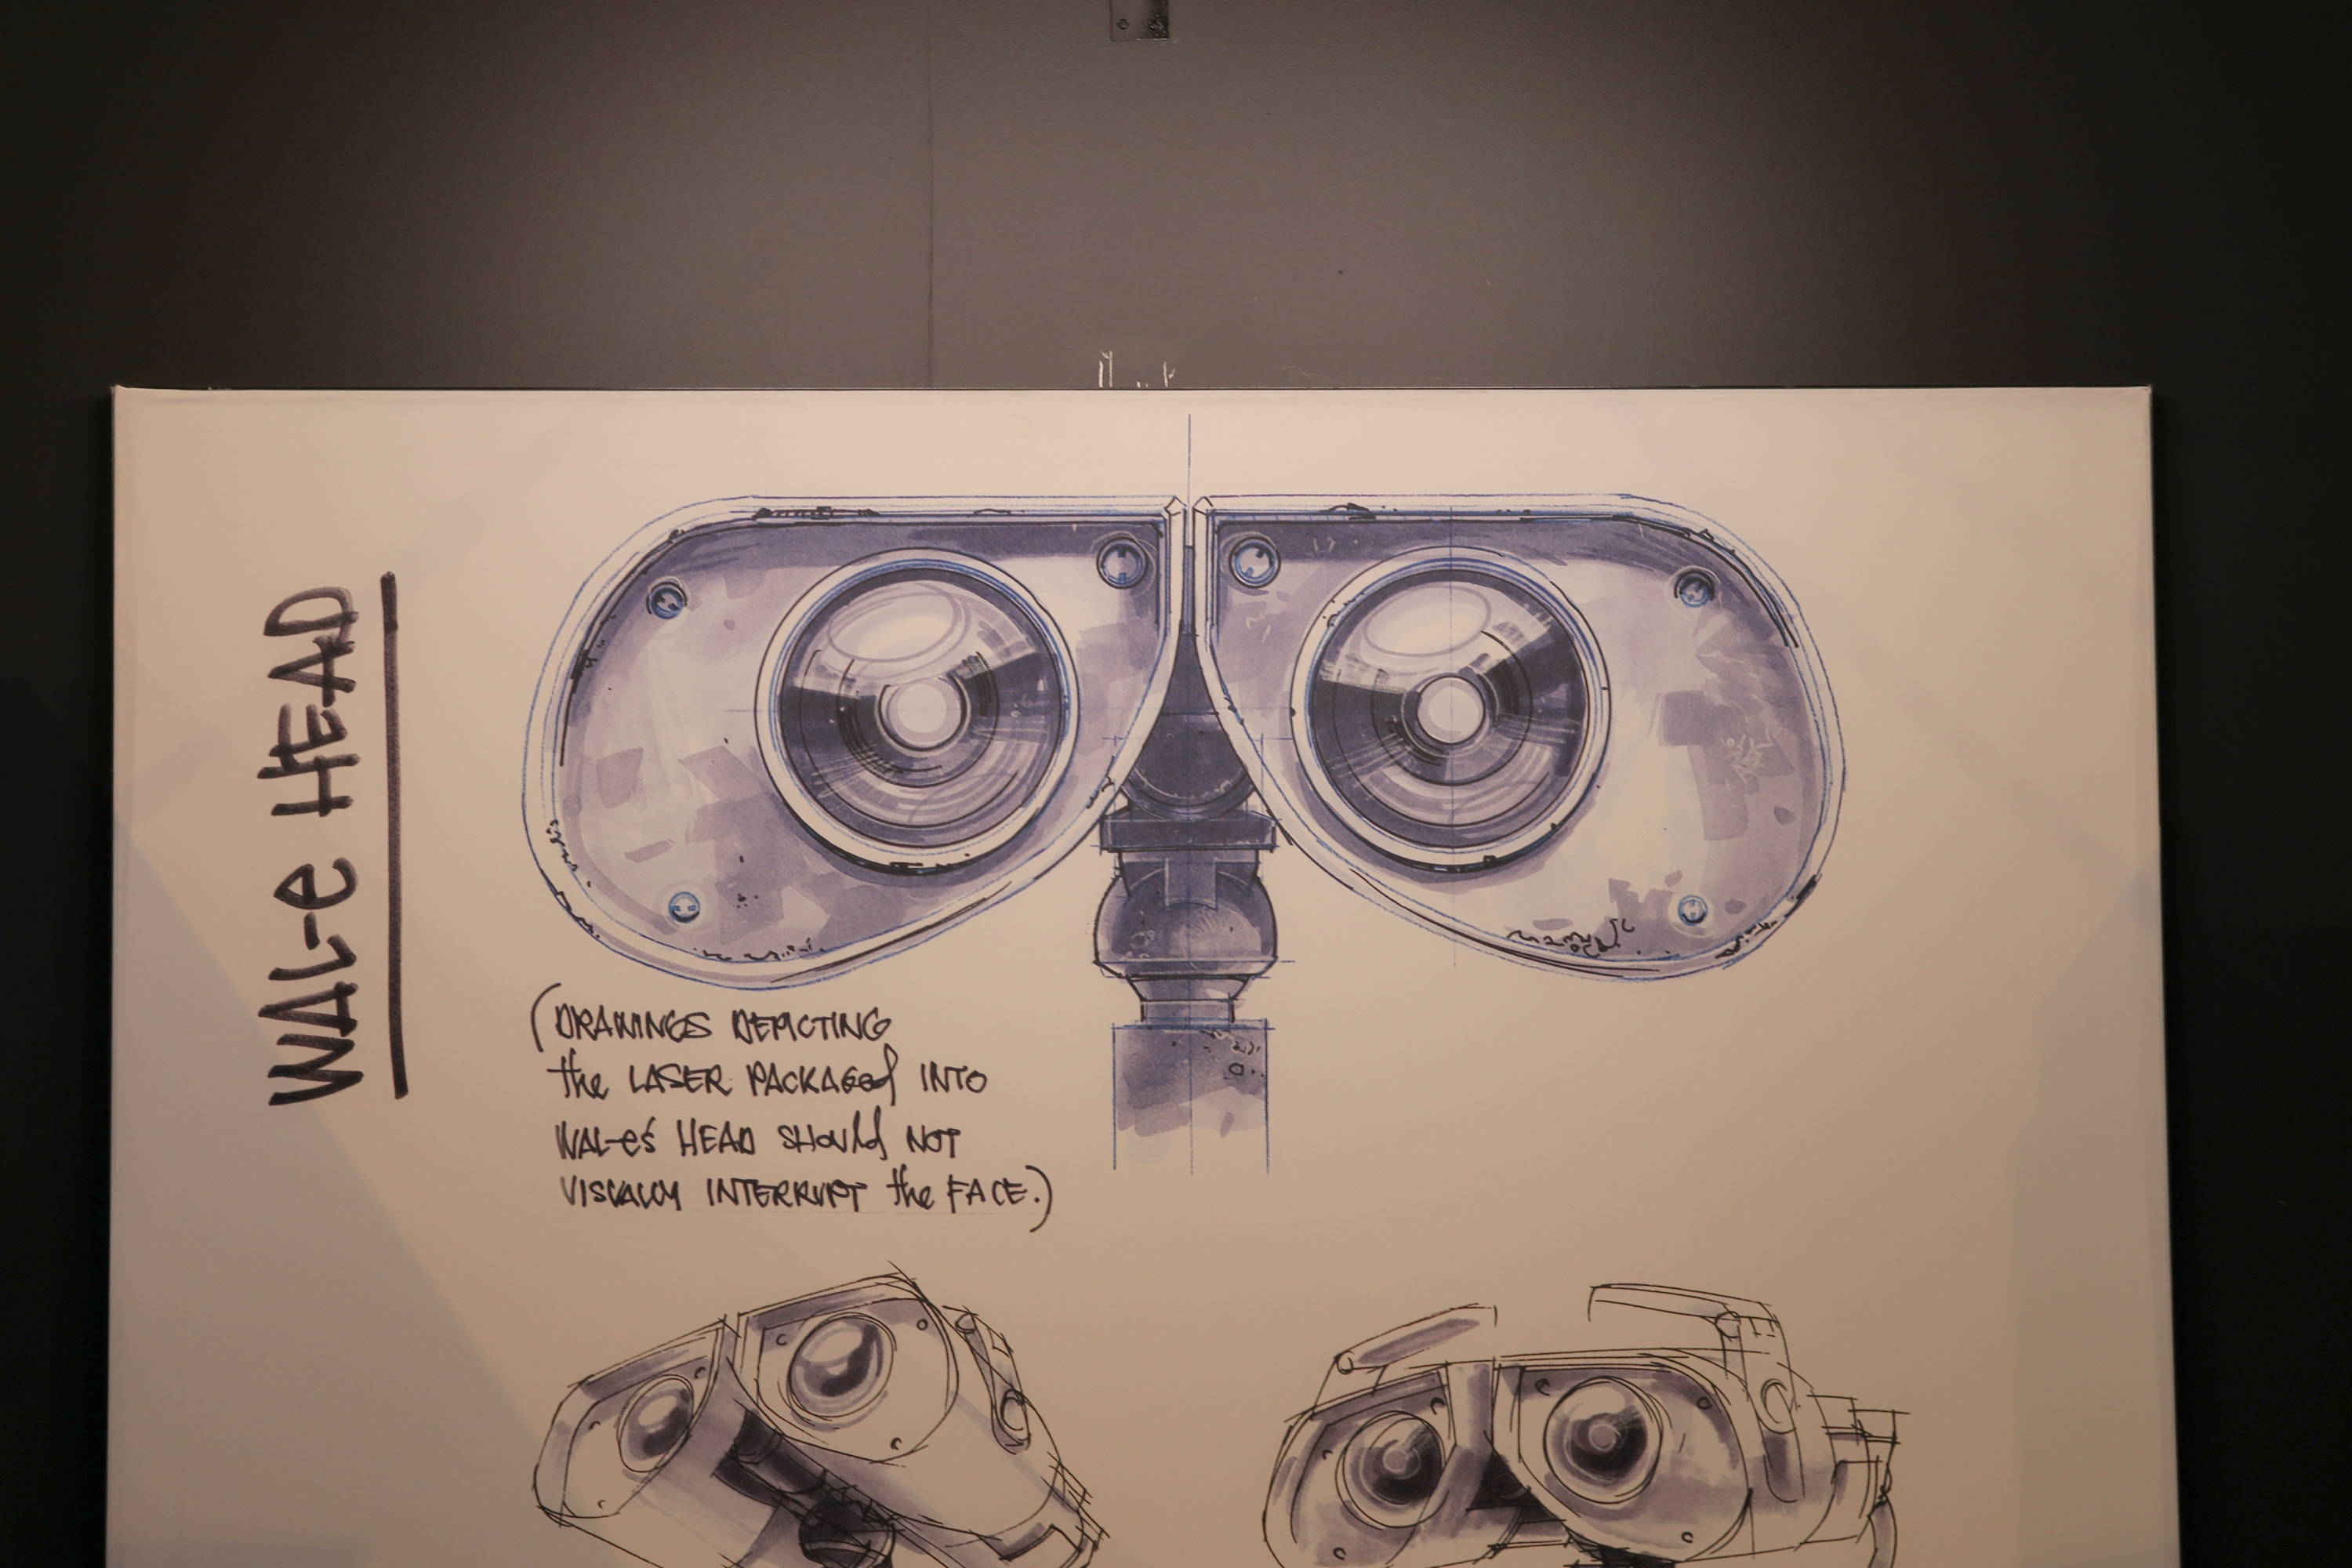 WAL-e HEAD
(DRAWINGS DEPICTING
the LASER PACKAGed INTO
WAL-e's HEAD SHOULd NOT
VISUALLY INTERRUPT the FACE.)